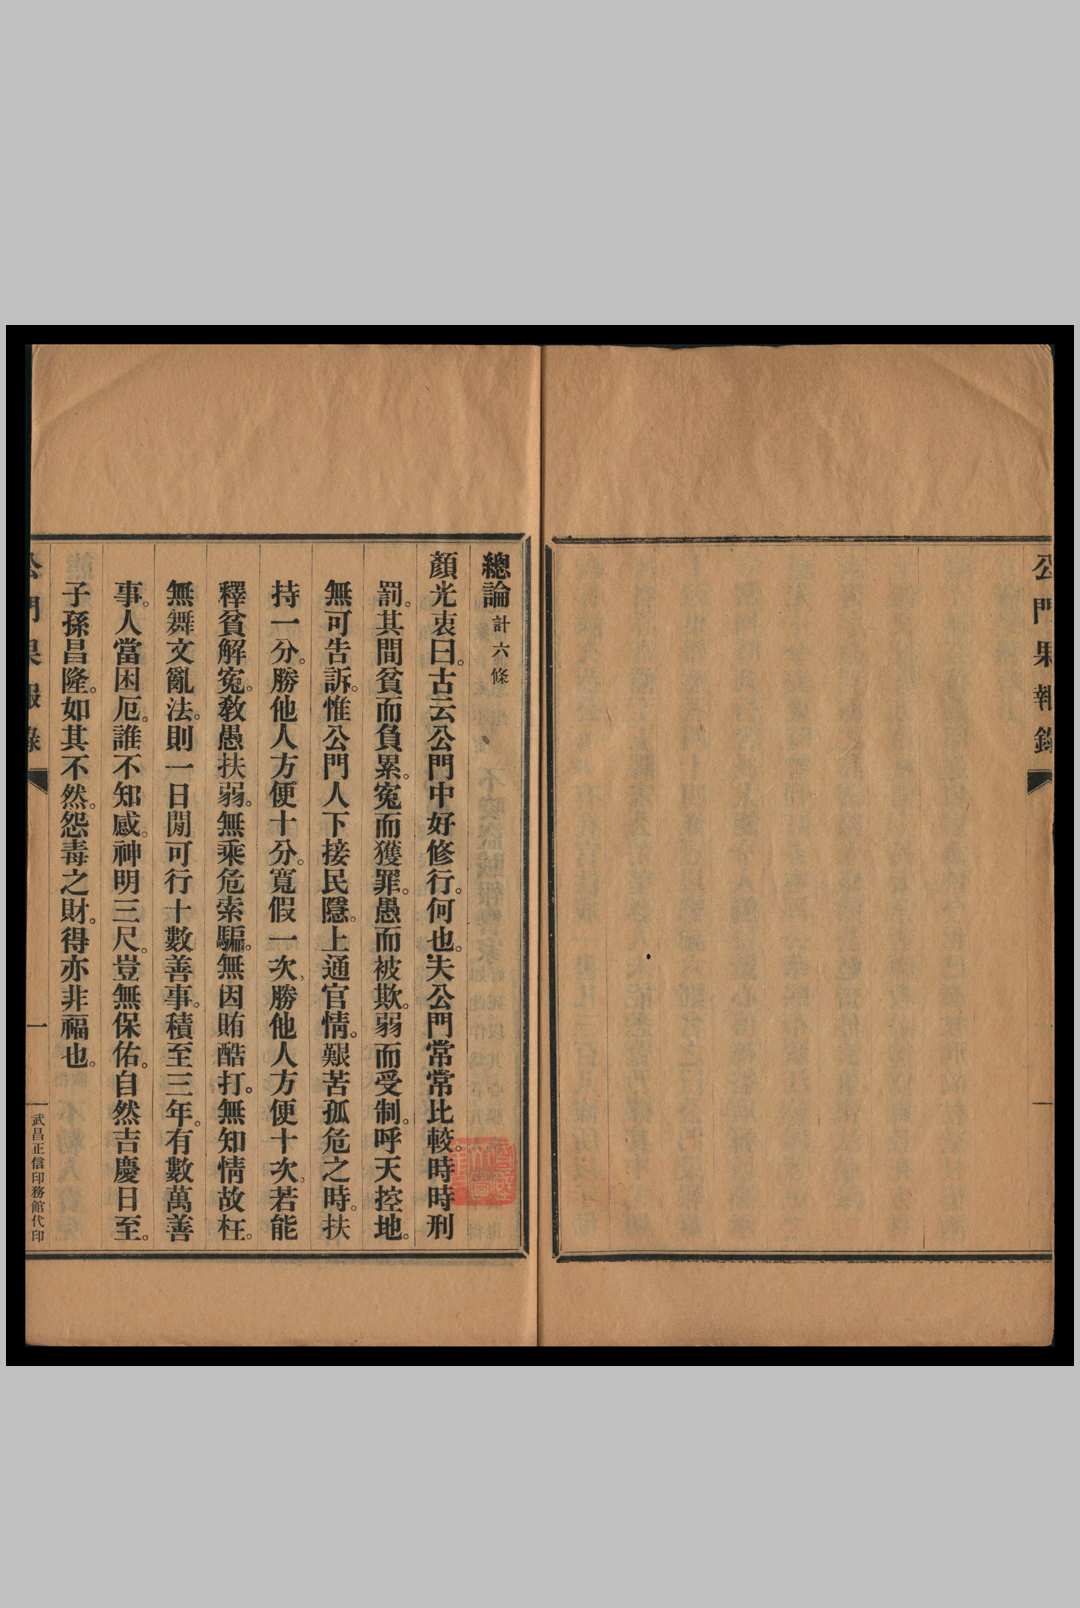 公門果報錄
總論計六條
顏光衷曰。古云公門中好修行。何也。夫公門常常比較。時時刑
罰。其間貧而負累。寃而獲罪。愚而被欺。弱而受制。呼天控地。
無可告訴。惟公門人下接民隱。上通官情。艱苦孤危之時。扶
持一分。勝他人方便十分。寬假一次、勝他人方便十次。若能
釋貧解寃。敎愚扶弱。無乘危索騙。無因賄酷打。無知情故枉。
無舞文亂法。則一日閒可行十數善事。積至三年。有數萬善
事。人當困厄。誰不知感。神明三尺。豈無保佑。自然吉慶日至。
子孫昌隆。如其不然。怨毒之財。得亦非福也。
公門果報錄
一
武昌正信印務館代印